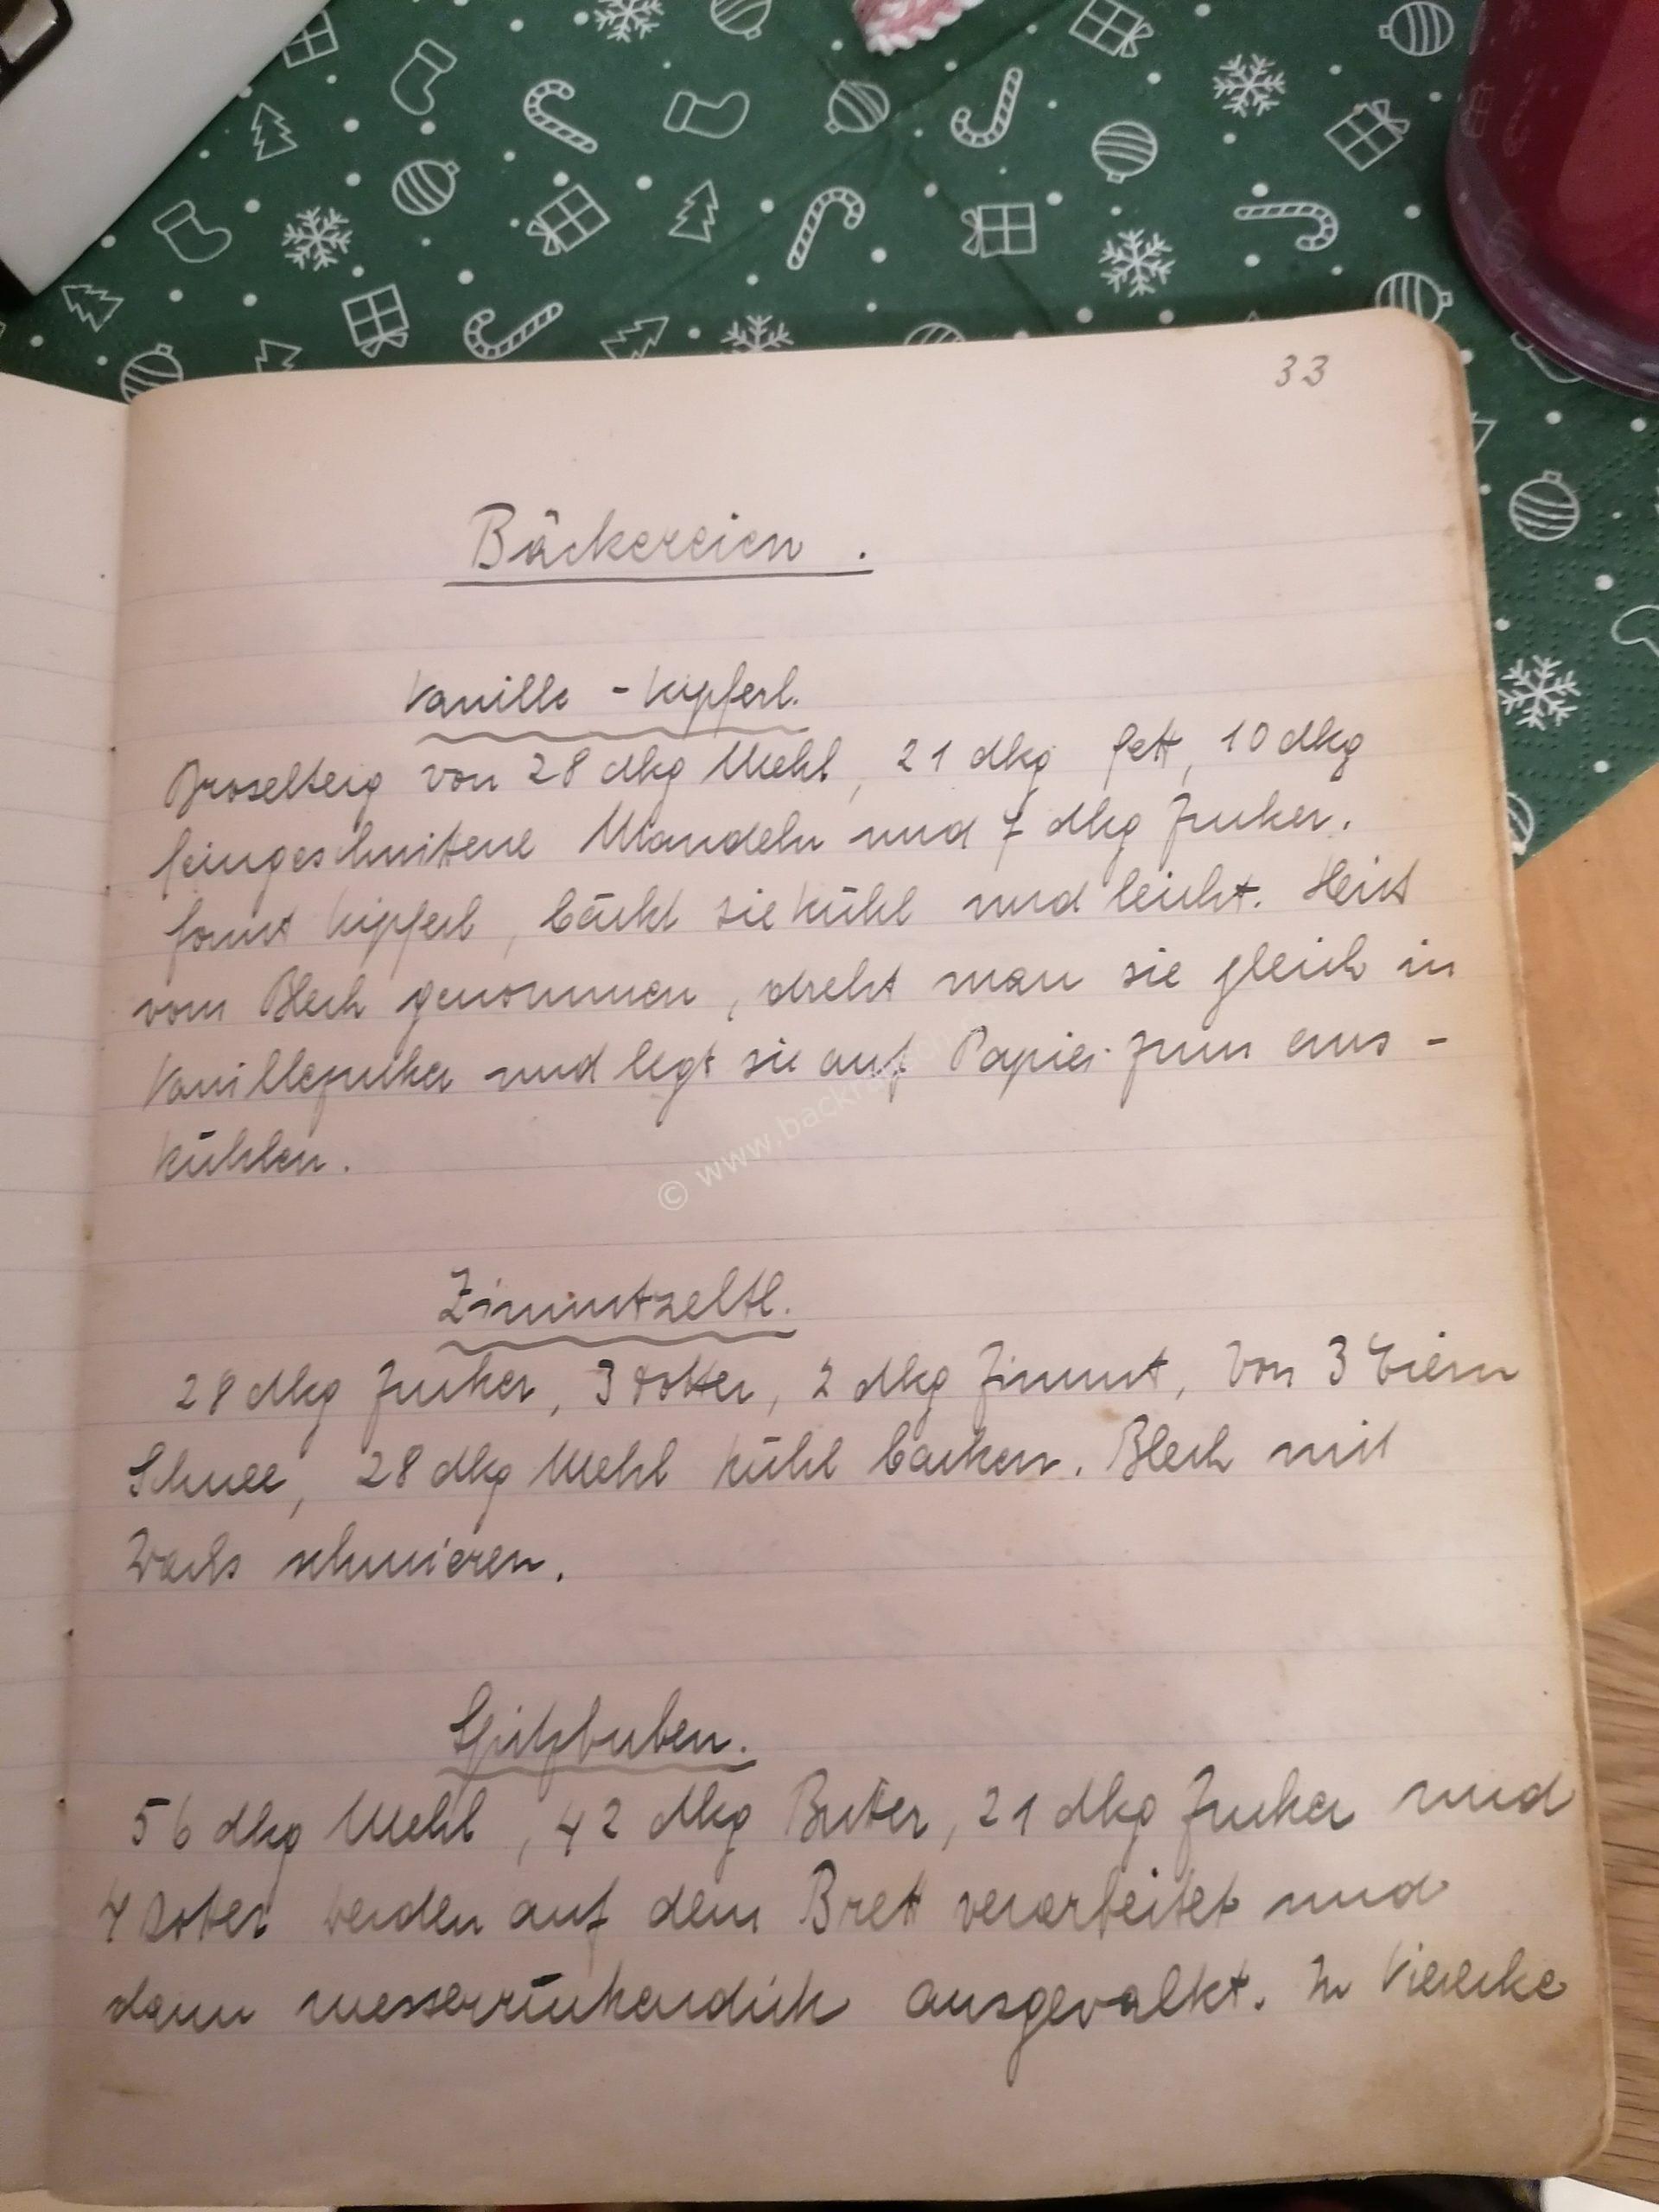 33
Bäckereien .
Vanille - Kipferl.
Broselteig von 28 dkg Mehl, 21 dkg Fett, 10 dkg
feingeschnittene Mandeln und 7 dkg Zucker.
formt Kipferl, bäckt sie kühl und leicht. Heist
vom Blech genommen, dreht man sie gleich in
Vanillezucker und legt sie auf Papier zum aus -
kühlen.
© www.back
Zimmtzeltl.
28 dkg Zucker, 3 Dotter, 2 dkg Zimmt, Von 3 Eiern
Schnee, 28 dkg Mehl kühl backen. Blech mit
Wachs schmieren.
Spitzbuben.
56 dkg Mehl, 42 dkg Butter, 21 dkg Zucker und
4 Dotter werden auf dem Brett verarbeitet und
dann messerrückendick ausgewalkt. In Vierecke